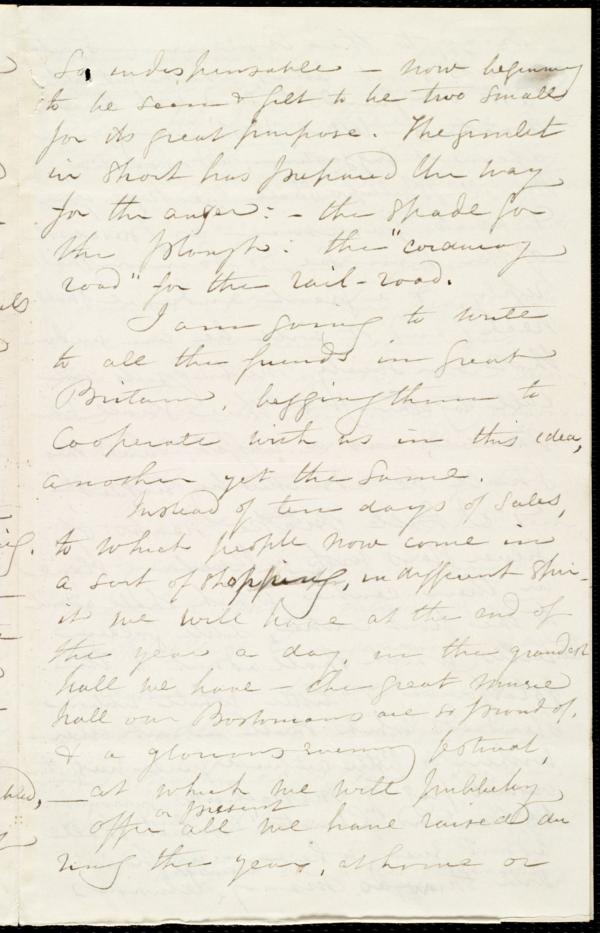 So indispensable – now beginning
to be seen & felt to be two small
for its great purpose. The gimlet
in short has prepared the way
for the auger: – the spade for
the plough: the "corduroy
road" for the rail-road.
I am going to write
to all the friends in Great
Britain, begging them to
Cooperate with us in this idea,
another yet the same.
Instead of ten days of sales,
to which people now come in
a sort of shopping, indifferent spir-
it we will have at the end of
the year a day, in the grandest
hall we have – the great music
hall our Bostonians are so proud of,
& a glorious evening festival,
– at which we will publickly
or present
offer all we have raised du
ring the year, at home or